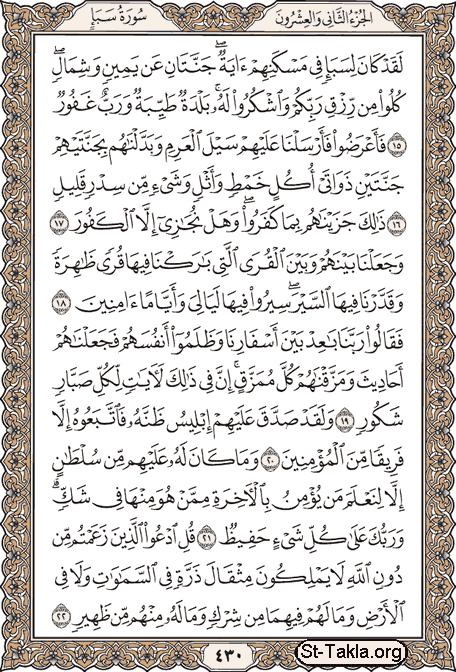 الجزء الثاني والعشرون
سورة سبإ
لَقَدْ كَانَ لِسَبَإٍ فِي مَسْكَنِهِمْ ءَايَةٌۖ جَنَّتَانِ عَن يَمِينٍ وَشِمَالٍۖ
كُلُوا۟ مِن رِّزْقِ رَبِّكُمْ وَٱشْكُرُوا۟ لَهُۥۚ بَلْدَةٌ طَيِّبَةٌ وَرَبٌّ غَفُورٌ
١٥ فَأَعْرَضُوا۟ فَأَرْسَلْنَا عَلَيْهِمْ سَيْلَ ٱلْعَرِمِ وَبَدَّلْنَٰهُم بِجَنَّتَيْهِمْ
جَنَّتَيْنِ ذَوَاتَىْ أُكُلٍ خَمْطٍ وَأَثْلٍ وَشَىْءٍ مِّن سِدْرٍ قَلِيلٍ
١٦ ذَٰلِكَ جَزَيْنَٰهُم بِمَا كَفَرُوا۟ۖ وَهَلْ نُجَٰزِىٓ إِلَّا ٱلْكَفُورَ ١٧
وَجَعَلْنَا بَيْنَهُمْ وَبَيْنَ ٱلْقُرَى ٱلَّتِى بَٰرَكْنَا فِيهَا قُرًى ظَٰهِرَةً
وَقَدَّرْنَا فِيهَا ٱلسَّيْرَۖ سِيرُوا۟ فِيهَا لَيَالِىَ وَأَيَّامًا ءَامِنِينَ ١٨
فَقَالُوا۟ رَبَّنَا بَٰعِدْ بَيْنَ أَسْفَارِنَا وَظَلَمُوٓا۟ أَنفُسَهُمْ فَجَعَلْنَٰهُمْ
أَحَادِيثَ وَمَزَّقْنَٰهُمْ كُلَّ مُمَزَّقٍۚ إِنَّ فِى ذَٰلِكَ لَءَايَٰتٍ لِّكُلِّ صَبَّارٍ
شَكُورٍ ١٩ وَلَقَدْ صَدَّقَ عَلَيْهِمْ إِبْلِيسُ ظَنَّهُۥ فَٱتَّبَعُوهُ إِلَّا
فَرِيقًا مِّنَ ٱلْمُؤْمِنِينَ ٢٠ وَمَا كَانَ لَهُۥ عَلَيْهِم مِّن سُلْطَٰنٍ
إِلَّا لِنَعْلَمَ مَن يُؤْمِنُ بِٱلْءَاخِرَةِ مِمَّنْ هُوَ مِنْهَا فِى شَكٍّۗ
وَرَبُّكَ عَلَىٰ كُلِّ شَىْءٍ حَفِيظٌ ٢١ قُلِ ٱدْعُوا۟ ٱلَّذِينَ زَعَمْتُم مِّن
دُونِ ٱللَّهِ لَا يَمْلِكُونَ مِثْقَالَ ذَرَّةٍ فِى ٱلسَّمَٰوَٰتِ وَلَا فِى
ٱلْأَرْضِ وَمَا لَهُمْ فِيهِمَا مِن شِرْكٍ وَمَا لَهُۥ مِنْهُم مِّن ظَهِيرٍ ٢٢
٤٣٠
St-Takla.org